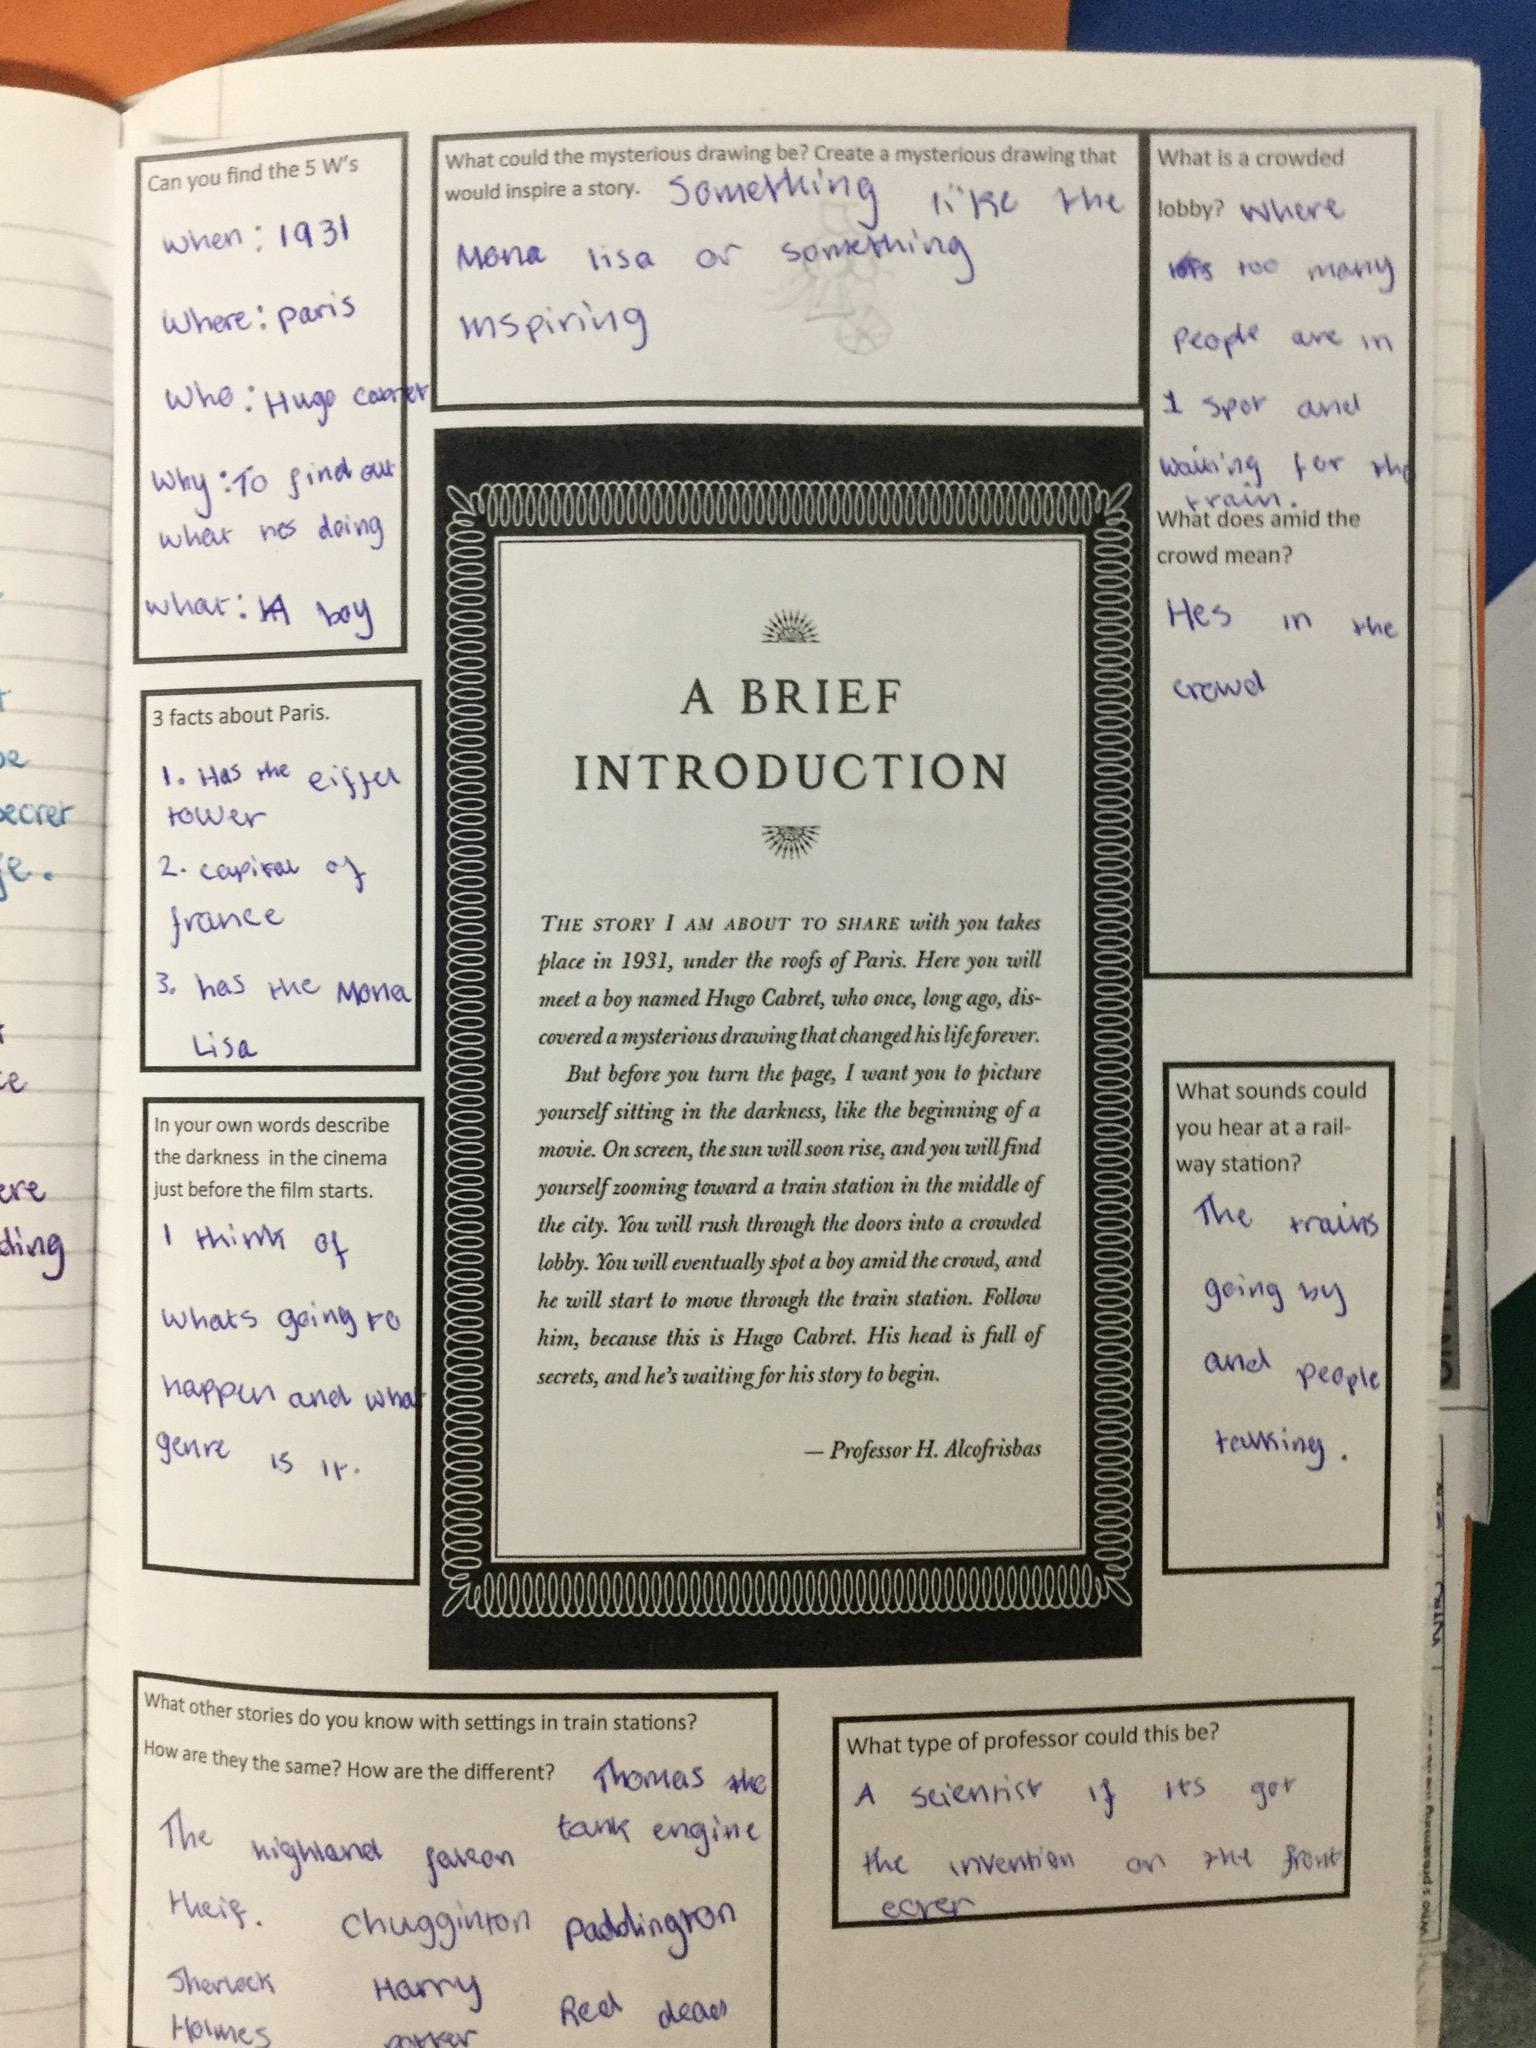 Can you find the 5 W's
When: 1931
Where: paris
Who: Hugo cabret
Why: To find out
what hes doing
what: A boy
What could the mysterious drawing be? Create a mysterious drawing that
would inspire a story. Something like the
Mona lisa or something
inspiring
What is a crowded
lobby? Where
too many
people are in
1 spot and
waiting for the
train.
What does amid the
crowd mean?
Hes in the
crowd
3 facts about Paris.
1. Has the eiffel
tower
2. capital of
france
3. has the Mona
Lisa
In your own words describe
the darkness in the cinema
just before the film starts.
I think of
whats going to
happen and what
genre is it.
A BRIEF
INTRODUCTION
THE STORY I AM ABOUT TO SHARE with you takes
place in 1931, under the roofs of Paris. Here you will
meet a boy named Hugo Cabret, who once, long ago, dis-
covered a mysterious drawing that changed his life forever.
But before you turn the page, I want you to picture
yourself sitting in the darkness, like the beginning of a
movie. On screen, the sun will soon rise, and you will find
yourself zooming toward a train station in the middle of
the city. You will rush through the doors into a crowded
lobby. You will eventually spot a boy amid the crowd, and
he will start to move through the train station. Follow
him, because this is Hugo Cabret. His head is full of
secrets, and he's waiting for his story to begin.
— Professor H. Alcofrisbas
What sounds could
you hear at a rail-
way station?
The trains
going by
and people
talking.
What other stories do you know with settings in train stations?
How are they the same? How are the different? Thomas the
tank engine
The highland falcon
theif. Chugginton Paddington
Sherlock Harry Red dead
Holmes potter
What type of professor could this be?
A scientist if its got
the invention on the front
ecrer
secret
ere
ding